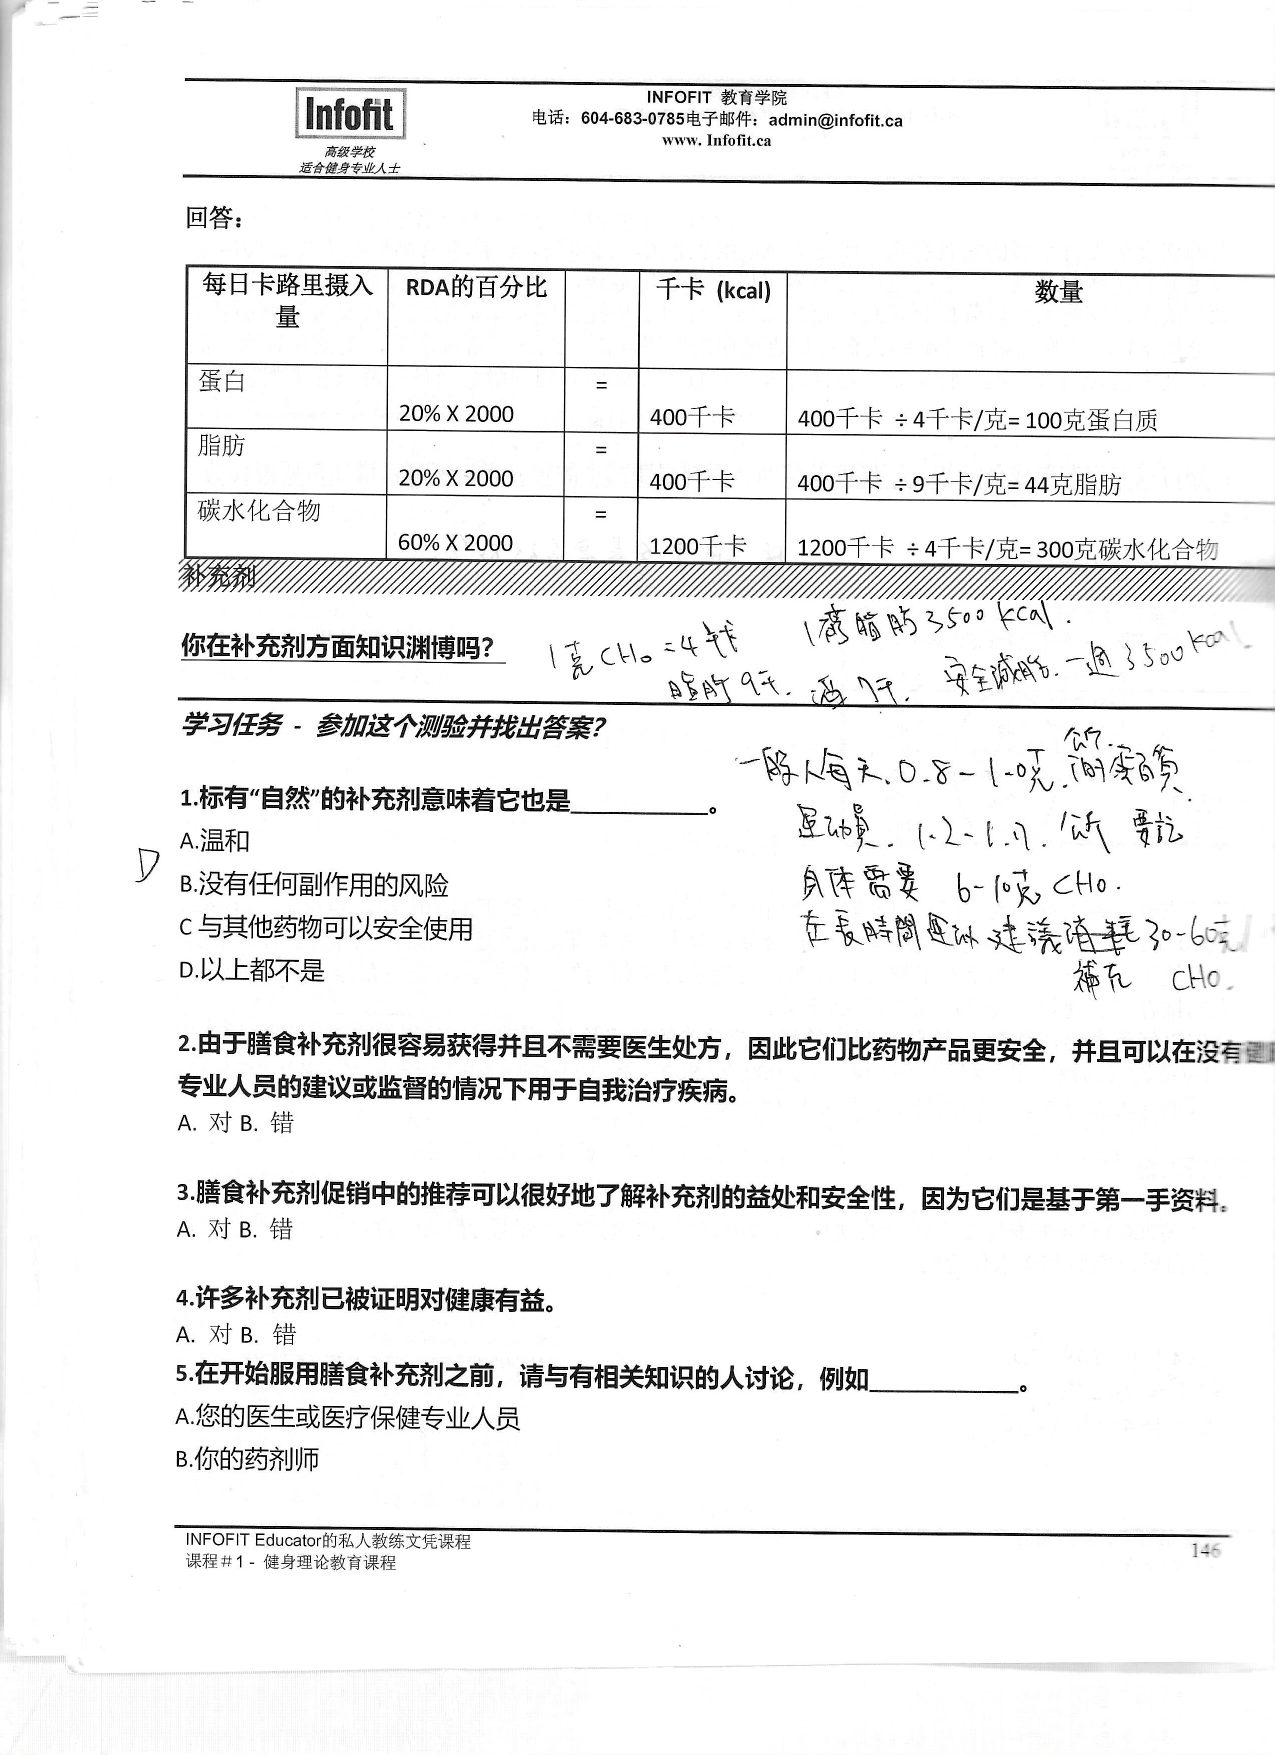 Infofit
高级学校
适合健身专业人士
INFOFIT 教育学院
电话：604-683-0785电子邮件：admin@infofit.ca
www. Infofit.ca
回答：
每日卡路里摄入量 RDA的百分比 千卡 (kcal) 数量
蛋白 20% X 2000 = 400千卡 400千卡 ÷4千卡/克= 100克蛋白质
脂肪 20% X 2000 = 400千卡 400千卡 ÷9千卡/克= 44克脂肪
碳水化合物 60% X 2000 = 1200千卡 1200千卡 ÷4千卡/克= 300克碳水化合物
补充剂
1磅脂肪3500 kcal.
你在补充剂方面知识渊博吗？
1克CHO=4千卡
脂肪9千. 酒7千. 安全減脂. 一週3500kcal
学习任务 - 参加这个测验并找出答案？
一般人每天. 0.8-1.0克/公斤.的蛋白質.
1.标有“自然”的补充剂意味着它也是___________。
運动員. 1.2-1.7. /公斤 要記
A.温和
D
B.没有任何副作用的风险
身体需要 6-10克 CHO.
C 与其他药物可以安全使用
在長時間運动 建議消耗 30-60克/
補充 CHO.
D.以上都不是
2.由于膳食补充剂很容易获得并且不需要医生处方，因此它们比药物产品更安全，并且可以在没有健
专业人员的建议或监督的情况下用于自我治疗疾病。
A. 对 B. 错
3.膳食补充剂促销中的推荐可以很好地了解补充剂的益处和安全性，因为它们是基于第一手资料。
A. 对 B. 错
4.许多补充剂已被证明对健康有益。
A. 对 B. 错
5.在开始服用膳食补充剂之前，请与有相关知识的人讨论，例如____________。
A.您的医生或医疗保健专业人员
B.你的药剂师
INFOFIT Educator的私人教练文凭课程
课程＃1 - 健身理论教育课程
146